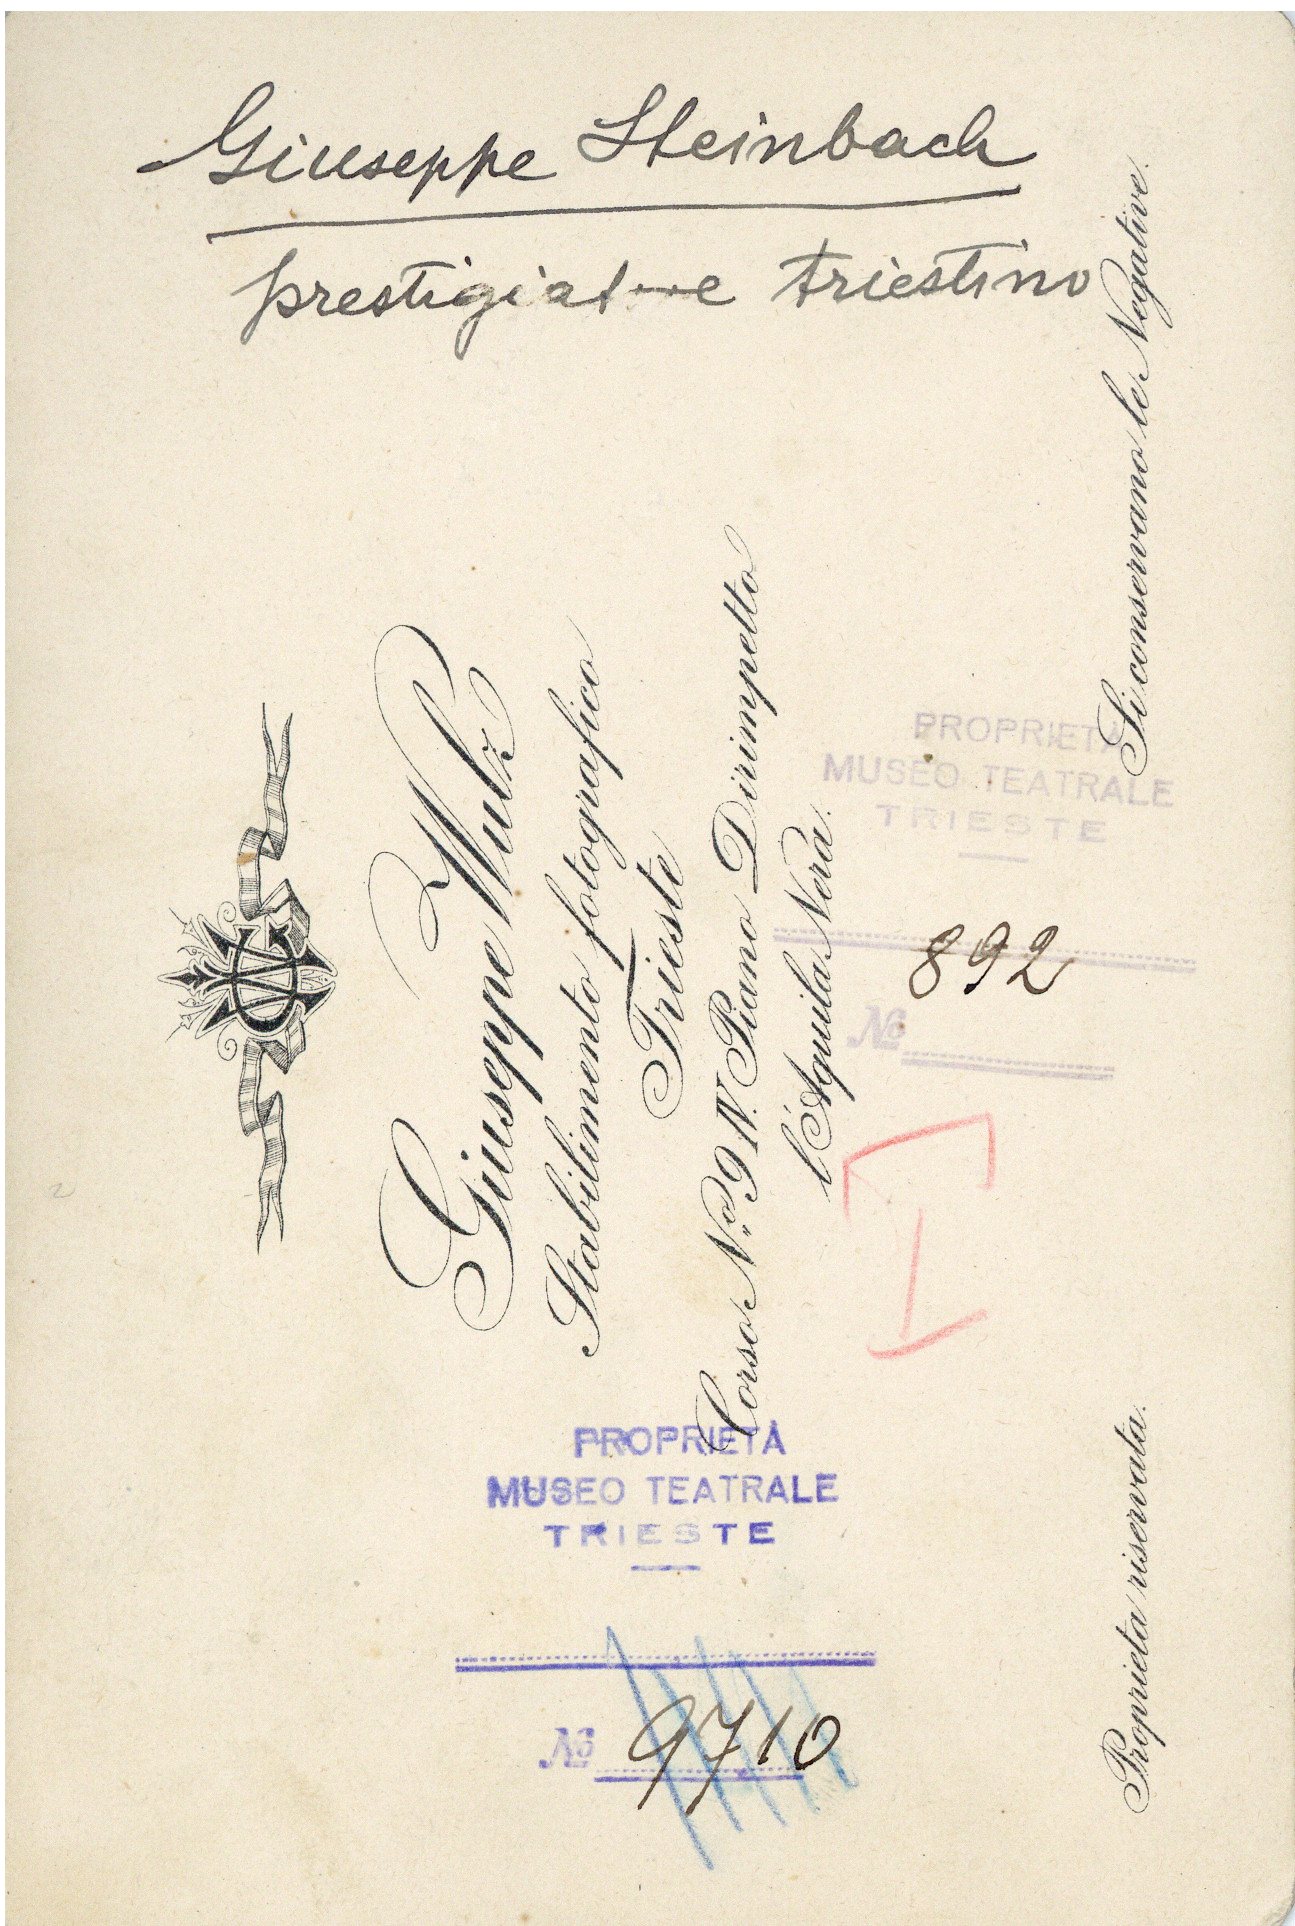 Giuseppe Steinbach
prestigiatore triestino
Giuseppe Wulz
Stabilimento fotografico
Trieste
Corso No. 9 IV. Piano Dirimpetto
l'Aquila Nera.
Si conservano le Negative.
Proprieta riservata.
PROPRIETÀ
MUSEO TEATRALE
TRIESTE
892
No
I
PROPRIETÀ
MUSEO TEATRALE
TRIESTE
No 9710